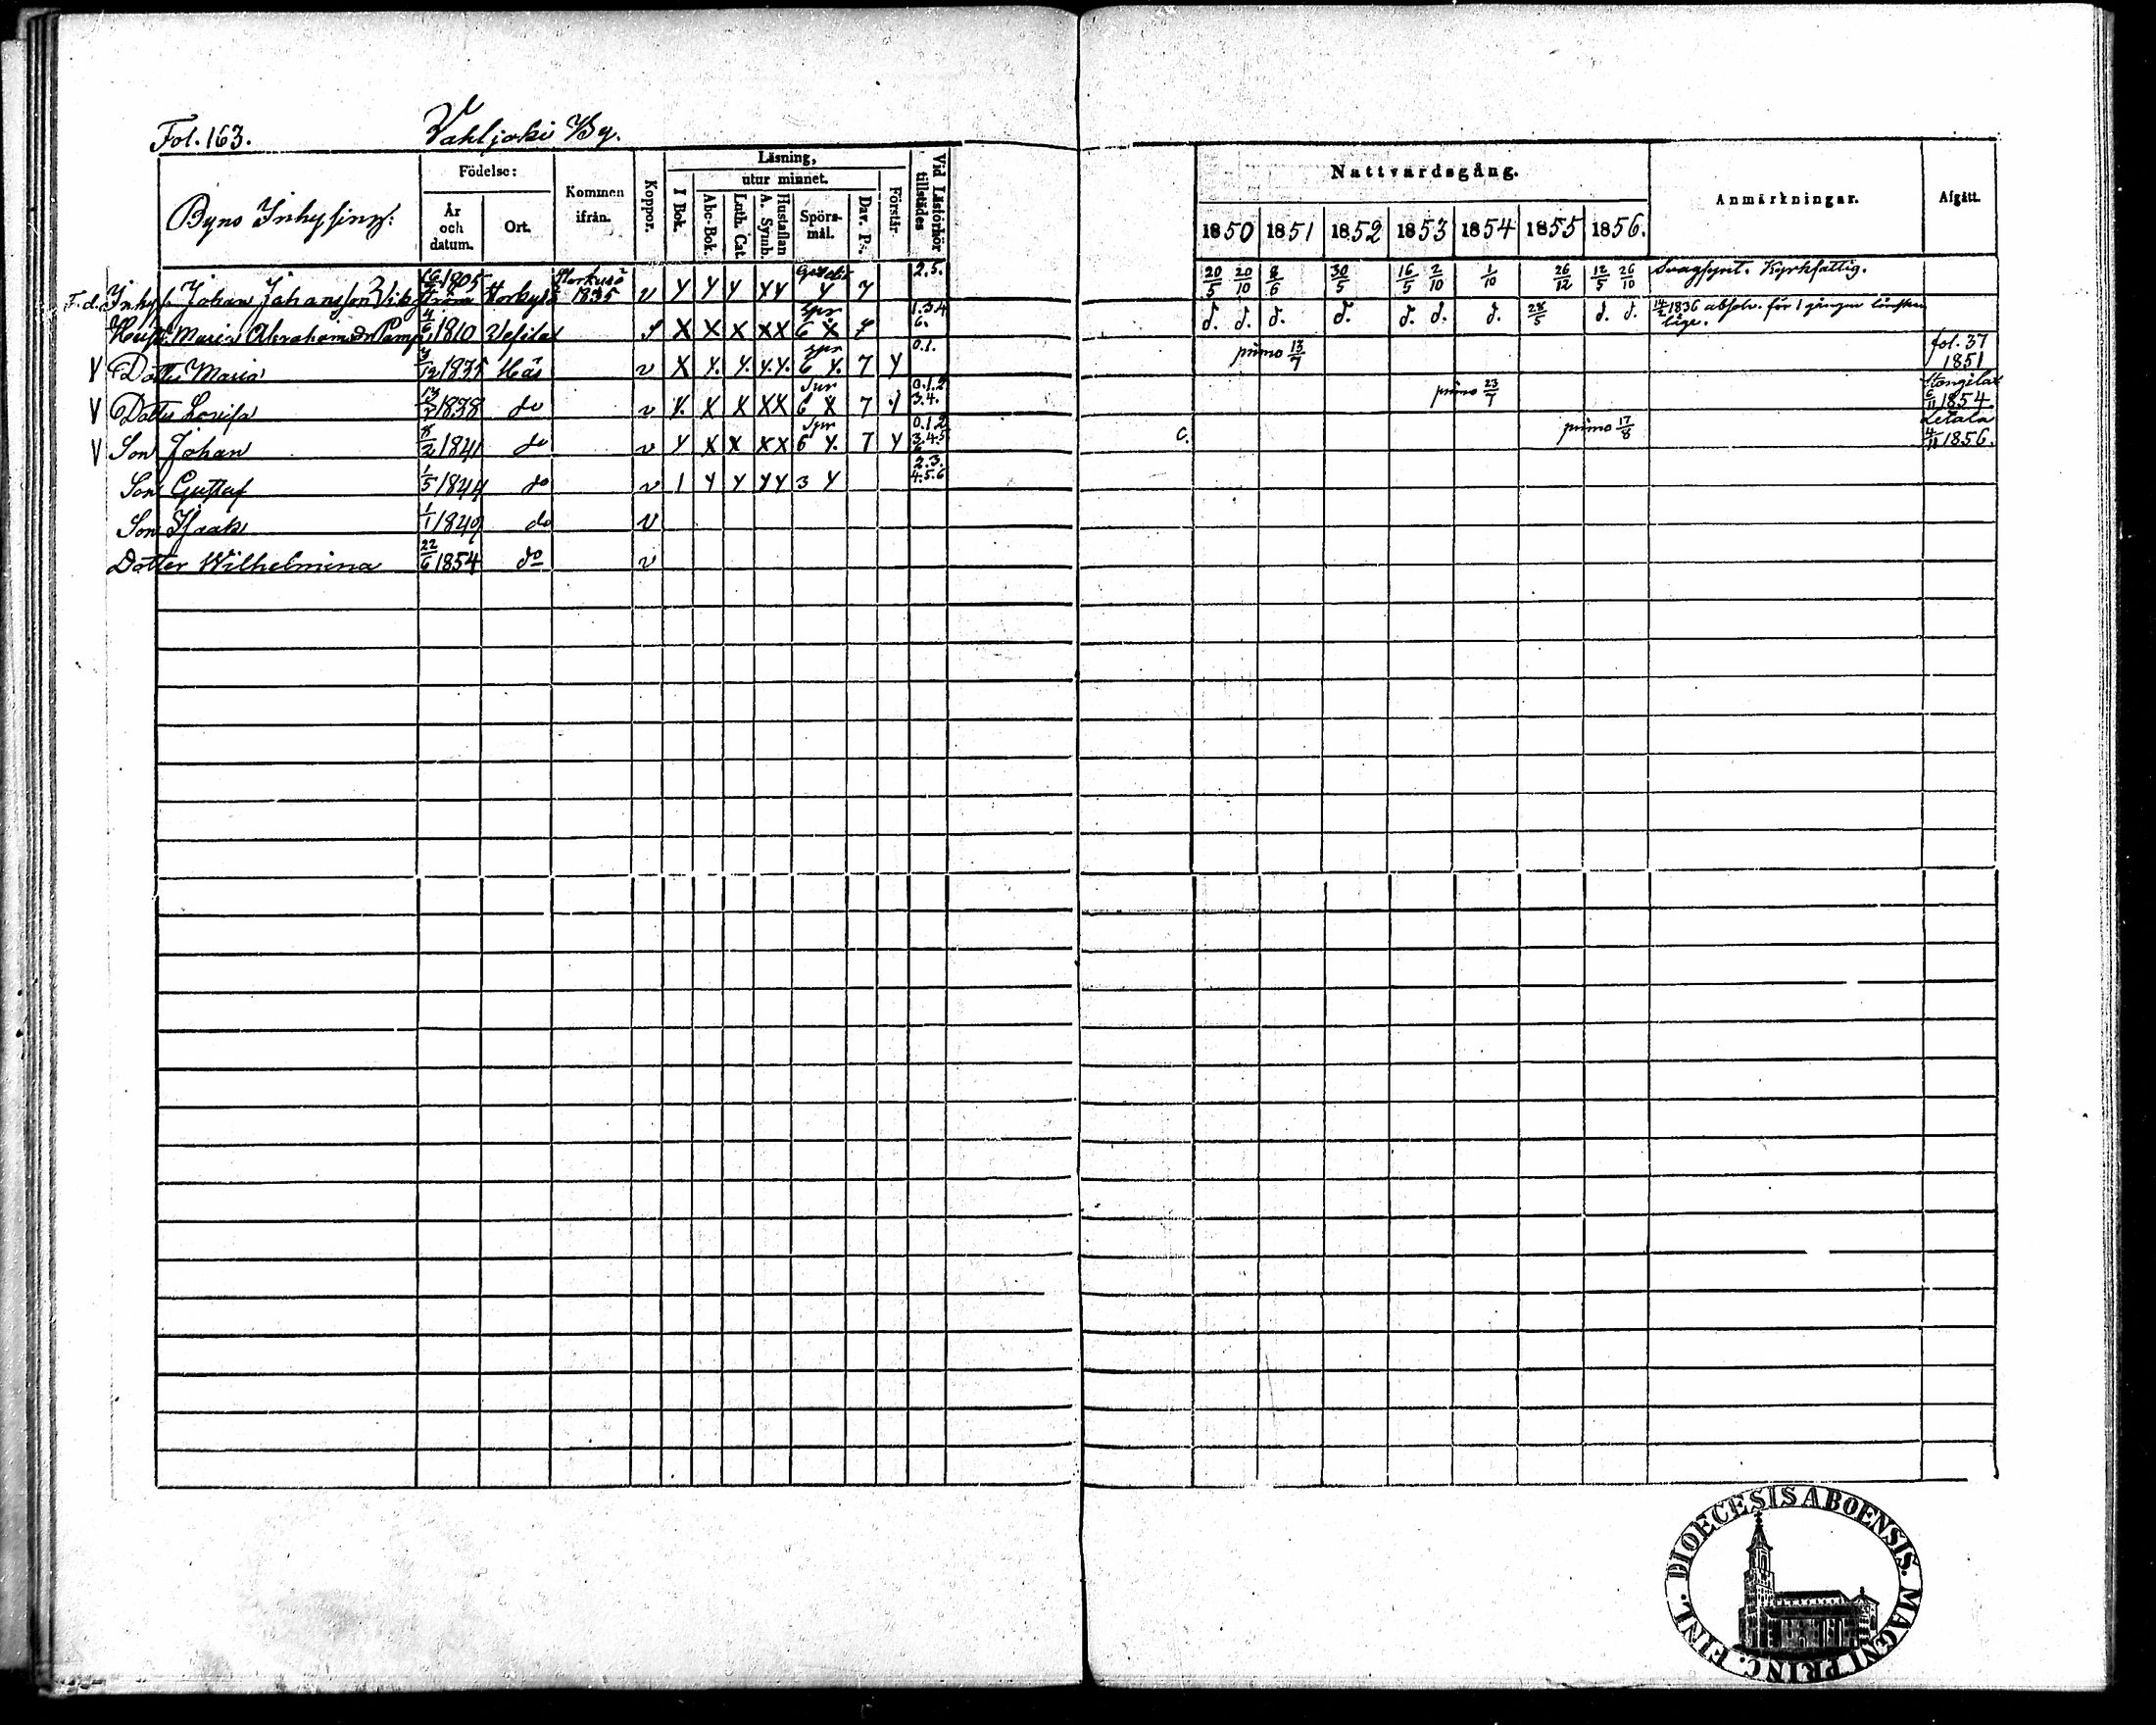 Fol. 163. Vahljoki By.
Byns Inhysing:
Födelse:
År och datum.
Ort.
Kommen ifrån.
Koppor.
Läsning,
I Bok.
utur minnet.
Abc-Bok.
Luth. Cat.
Hustaflan A. Symb.
Spörs-mål.
Dav. Ps.
Förstår.
Vid Läsförhör tillstädes
Nattvardsgång.
1850 1851 1852 1853 1854 1855 1856.
Anmärkningar.
Afgått.
F.d. Inhys. Johan Johansson 1805 1835 v Y Y Y Y Y Y 7 2.5. 20/5 20/10 8/6 30/5 16/5 2/10 1/10 26/12 12/5 26/10 Svagsynt. Kyrkfattig.
Hust. Maria Abrahamsdr 1810 X X X X X 6 X 1.3.4 6. d. d. d. d. d. d. d. 28/5 d. d. 1836 absolv. för 1 gången
V Dotter Maria 1835 v X Y. Y. Y. Y. 6 Y. 7 Y 0.1. primo 13/7 fol. 37 1851
V Dotter Lovisa 1838 do v Y. X X X X 6 X 7 0.1.2 3.4. primo 23/7 1854
V Son Johan 8/2 1841 do v Y X X X X 6 Y. 7 Y 0.1.2 3.4.5 c. primo 17/8 Letala 1856.
Son Gustaf 1/5 1844 do v 1 Y Y Y Y 3 Y 2.3. 4.5.6
Son Isaak 1/1 1849 do v
Dotter Wilhelmina 22/6 1854 do v
FINL. DIOECESIS ABOENSIS. MAGNI PRINC.